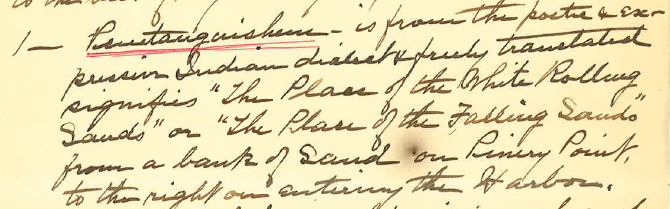 1 — Penetanguishene — is from the poetic & ex-
pressive Indian dialect & freely translated
signifies "The Place of the White Rolling
Sands" or "The Place of the Falling Sands"
from a bank of Sand on Pinery Point,
to the right on entering the Harbor.